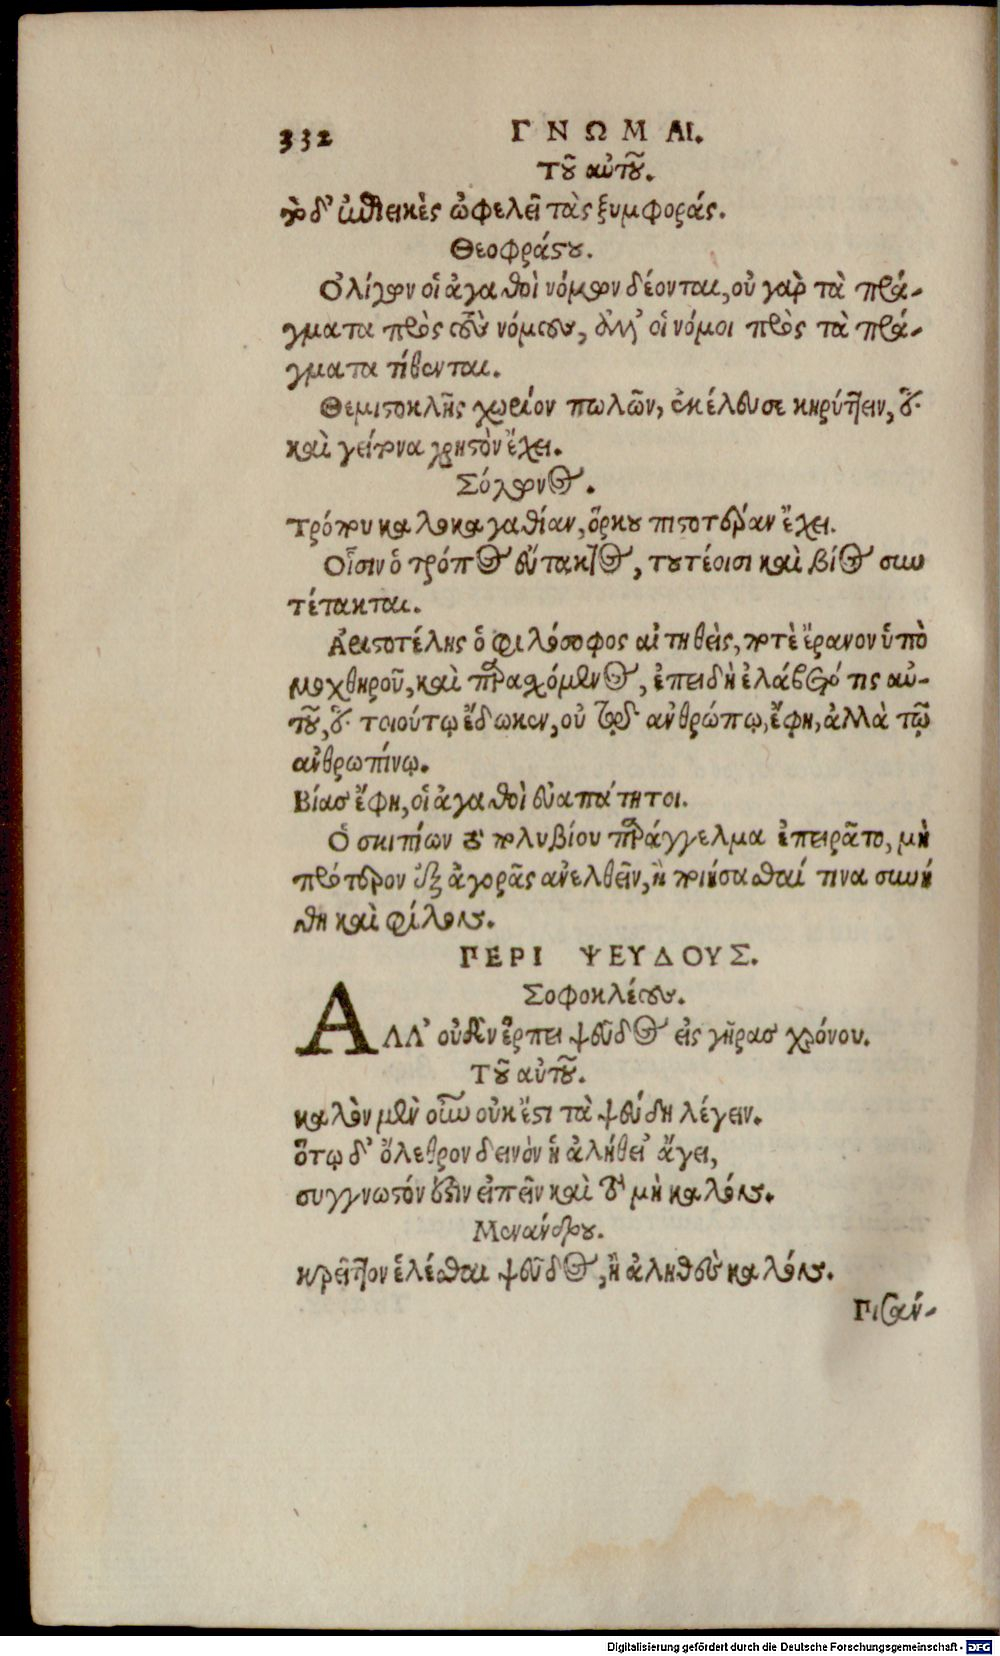 332 ΓΝΩΜΑΙ.
Τοῦ αὐτοῦ.
τὸ δ' ἐπιεικὲς ὠφελεῖ τὰς ξυμφοράς.
Θεοφράστου.
Ὀλίγων οἱ ἀγαθοὶ νόμων δέονται, οὐ γὰρ τὰ πρά-
γματα πρὸς τοὺς νόμους, ἀλλ' οἱ νόμοι πρὸς τὰ πρά-
γματα τίθενται.
Θεμιστοκλῆς χωρίον πωλῶν, ἐκέλευσε κηρύττειν, ὅτι
καὶ γείτονα χρηστὸν ἔχει.
Σόλωνος.
Τρόπου καλοκαγαθίαν, ὅρκου πιστοτέραν ἔχει.
Οἷσιν ὁ τρόπος εὔτακτος, τουτέοισι καὶ βίος συν
τέτακται.
Ἀριστοτέλης ὁ φιλόσοφος αἰτηθεὶς, ποτὲ ἔρανον ὑπὸ
μοχθηροῦ, καὶ παρασχόμενος, ἐπειδὴ ἐλάβετό τις αὐ-
τοῦ, ὅτι τοιούτῳ ἔδωκεν, οὐ τῷδ' ἀνθρώπῳ, ἔφη, ἀλλὰ τῷ
ἀνθρωπίνῳ.
Βίας ἔφη, οἱ ἀγαθοὶ εὐαπάτητοι.
Ὁ σκιπίων τὸ πολυβίου παράγγελμα ἐπειρᾶτο, μὴ
πρότερον ἐξ ἀγορᾶς ἀνελθεῖν, ἢ ποιήσασθαί τινα συνή
θη καὶ φίλοις.
ΠΕΡΙ ΨΕΥΔΟΥΣ.
Σοφοκλέους.
ΑΛΛ' οὐδὲν ἕρπει ψεῦδος εἰς γῆρας χρόνου.
Τοῦ αὐτοῦ.
καλὸν μὲν οὖν οὐκ ἔστι τὰ ψεύδη λέγειν.
ὅτῳ δ' ὄλεθρον δεινὸν ἡ ἀλήθει' ἄγει,
συγγνωστόν ἐστιν εἰπεῖν καὶ τὸ μὴ καλόν.
Μενάνδρου.
κρεῖττον ἑλέσθαι ψεῦδος, ἢ ἀληθὲς κακόν.
Πιθαν-
Digitalisierung gefördert durch die Deutsche Forschungsgemeinschaft - DFG